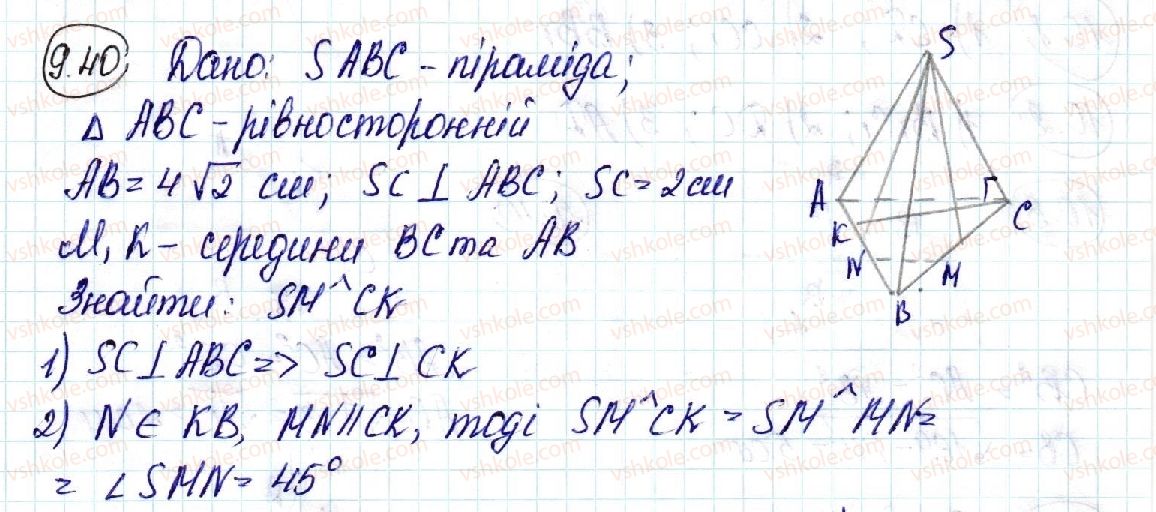 9.40 Дано: SABC – піраміда;
Δ ABC – рівносторонній
AB = 4√2 см; SC ⊥ ABC; SC = 2 см
M, K – середини BC та AB
Знайти: SM^CK
1) SC ⊥ ABC => SC ⊥ CK
2) N ∈ KB, MN || CK, тоді SM^CK = SM^MN =
= ∠ SMN = 45°
S
A
C
K
N
M
B